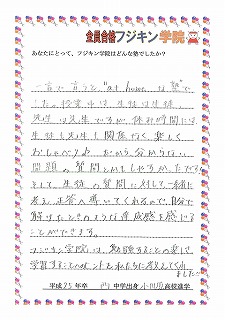 全員合格フジキン学院
あなたにとって、フジキン学院はどんな塾でしたか?
一言で言うと、"at home な塾"で
した。授業中は、生徒は生徒、
先生は先生ですが、休み時間には
生徒も先生も関係なく、楽しく
おしゃべり♪ だから、分からない
問題の質問とかもしやすかったです。
そして、生徒の質問に対して、一緒に
考え、正答へ導いてくれるので、自分で
解けたときのような達成感を感じる
ことができます。
フジキン学院は、勉強することの楽しさ、
学習することへのヒントを私たちに教えてくれ
ました!!
平成25年卒 中学出身 小田原高校進学